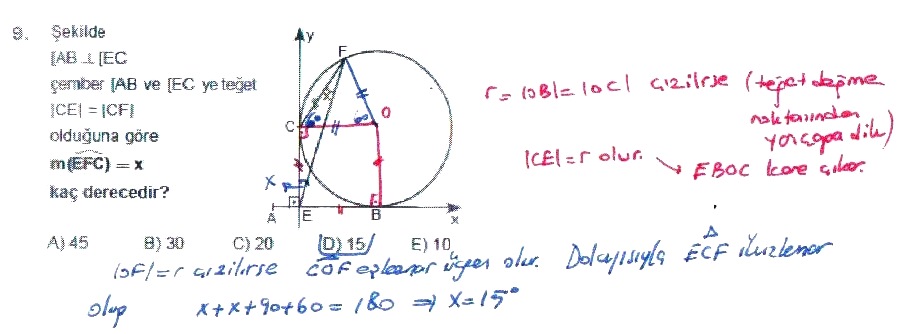 9. Şekilde
[AB ⊥ [EC
çember [AB ve [EC ye teğet
|CE| = |CF|
olduğuna göre
m(EFC) = x
kaç derecedir?
y
F
x
60°
60°
O
C
x
A
E
B
x
r = |OB| = |OC| çizilirse (teğet değme
noktasından
yarıçapa dik)
|CE| = r olur. → EBOC kare çıkar.
A) 45 B) 30 C) 20 D) 15 E) 10
|OF| = r çizilirse COF eşkenar üçgen olur. Dolayısıyla ECF ikizkenar
olup x+x+90+60 = 180 ⇒ x = 15°